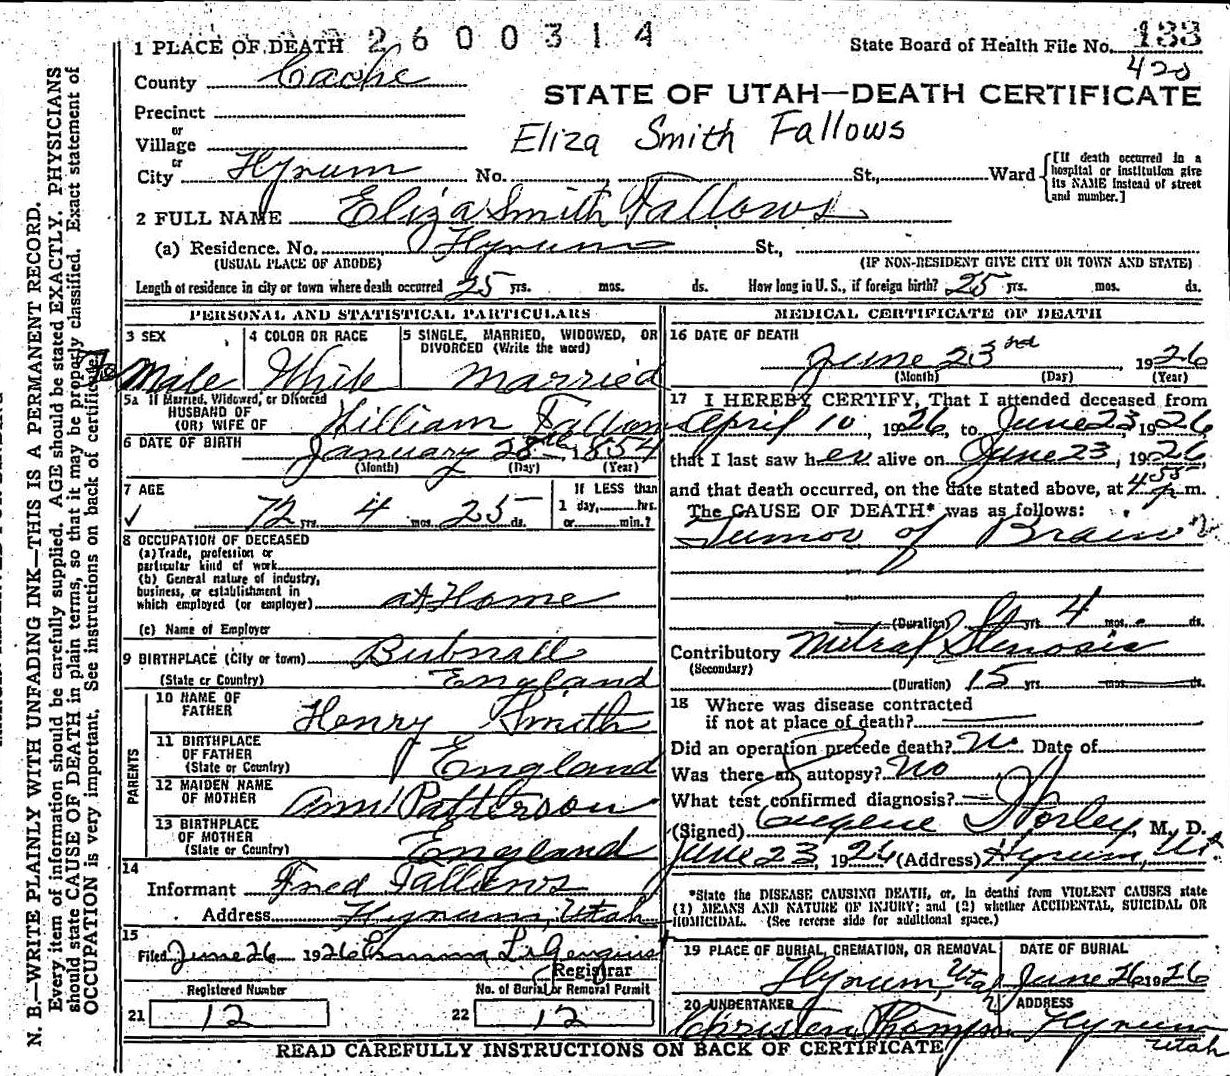 2600314
State Board of Health File No. 133
420
1 PLACE OF DEATH
County Cache
STATE OF UTAH—DEATH CERTIFICATE
Precinct
or
Village
Eliza Smith Fallows
or
City Hyrum No. St., Ward
[If death occurred in a hospital or institution give its NAME instead of street and number.]
2 FULL NAME Eliza Smith Fallows
(a) Residence. No. Hyrum St.,
(USUAL PLACE OF ABODE) (IF NON-RESIDENT GIVE CITY OR TOWN AND STATE)
Length of residence in city or town where death occurred 25 yrs. mos. ds. How long in U. S., if foreign birth? 25 yrs. mos. ds.
PERSONAL AND STATISTICAL PARTICULARS
3 SEX
Male
4 COLOR OR RACE
White
5 SINGLE, MARRIED, WIDOWED, OR DIVORCED (Write the word)
married
5a If Married, Widowed, or Divorced
HUSBAND OF
(OR) WIFE OF William Fallows
6 DATE OF BIRTH January 28th 1854
(Month) (Day) (Year)
7 AGE
72 yrs. 4 mos. 25 ds.
If LESS than
1 day, hrs.
or min.?
8 OCCUPATION OF DECEASED
(a) Trade, profession or
particular kind of work
(b) General nature of industry,
business, or establishment in
which employed (or employer) at Home
(c) Name of Employer
9 BIRTHPLACE (City or town)
(State or Country) England
PARENTS
10 NAME OF
FATHER Henry Smith
11 BIRTHPLACE
OF FATHER
(State or Country) England
12 MAIDEN NAME
OF MOTHER Ann Patterson
13 BIRTHPLACE
OF MOTHER
(State or Country) England
14
Informant Fred Fallows
Address Hyrum, Utah
15
Filed June 26 1926
Registrar
Registered Number
21 12
No. of Burial or Removal Permit
22 12
MEDICAL CERTIFICATE OF DEATH
16 DATE OF DEATH
June 23rd 1926
(Month) (Day) (Year)
17 I HEREBY CERTIFY, That I attended deceased from
April 10, 1926, to June 23, 1926,
that I last saw her alive on June 23, 1926,
and that death occurred, on the date stated above, at 4 55 p. m.
The CAUSE OF DEATH* was as follows:
Tumor of Brain
(Duration) yrs. 4 mos. ds.
Contributory Mitral Stenosis
(Secondary)
(Duration) 15 yrs. mos. ds.
18 Where was disease contracted
if not at place of death?
Did an operation precede death? No Date of
Was there an autopsy? No
What test confirmed diagnosis?
(Signed) Eugene Worley, M. D.
June 23, 1926 (Address) Hyrum, Ut
*State the DISEASE CAUSING DEATH, or, in deaths from VIOLENT CAUSES state
(1) MEANS AND NATURE OF INJURY; and (2) whether ACCIDENTAL, SUICIDAL OR
HOMICIDAL. (See reverse side for additional space.)
19 PLACE OF BURIAL, CREMATION, OR REMOVAL
Hyrum, Uta
DATE OF BURIAL
June 26 1926
20 UNDERTAKER
ADDRESS
Hyrum
Utah
READ CAREFULLY INSTRUCTIONS ON BACK OF CERTIFICATE
N. B.—WRITE PLAINLY WITH UNFADING INK—THIS IS A PERMANENT RECORD.
Every item of information should be carefully supplied. AGE should be stated EXACTLY. PHYSICIANS
should state CAUSE OF DEATH in plain terms, so that it may be properly classified. Exact statement of
OCCUPATION is very important. See instructions on back of certificate.